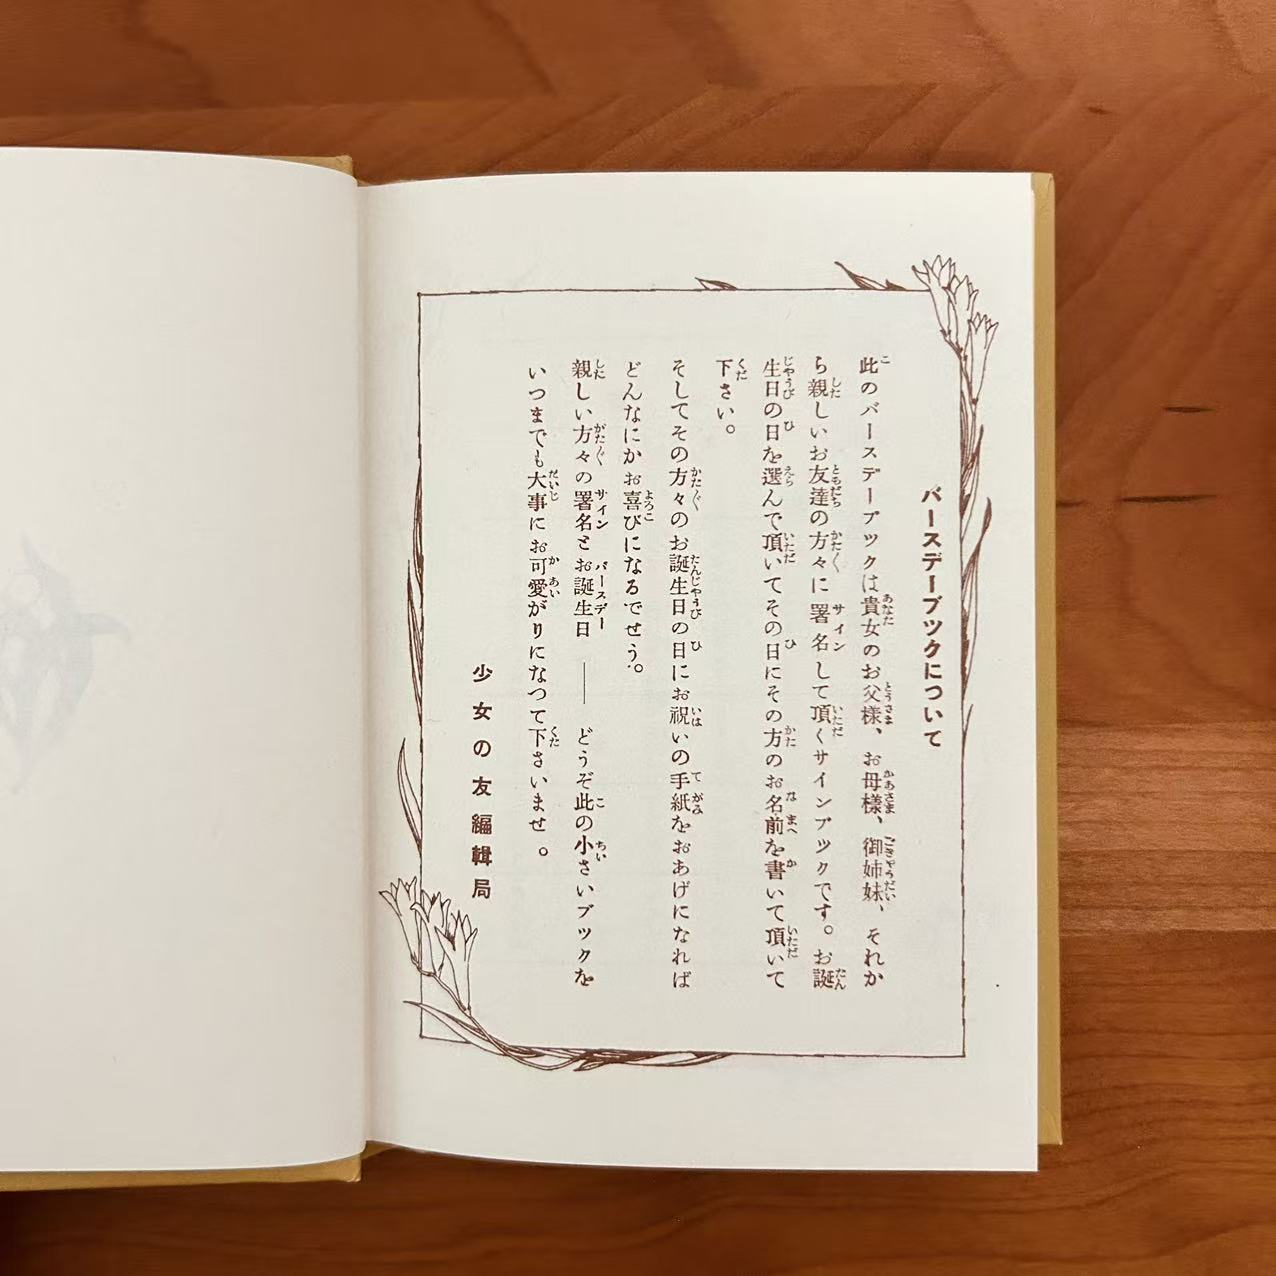 バースデーブツクについて
此のバースデーブツクは貴女のお父様、お母様、御姉妹、それか
ら親しいお友達の方々に署名して頂くサインブツクです。お誕
生日の日を選んで頂いてその日にその方のお名前を書いて頂いて
下さい。
そしてその方々のお誕生日の日にお祝いの手紙をおあげになれば
どんなにかお喜びになるでせう。
親しい方々の署名とお誕生日――どうぞ此の小さいブツクを
いつまでも大事にお可愛がりになつて下さいませ。
少女の友編輯局